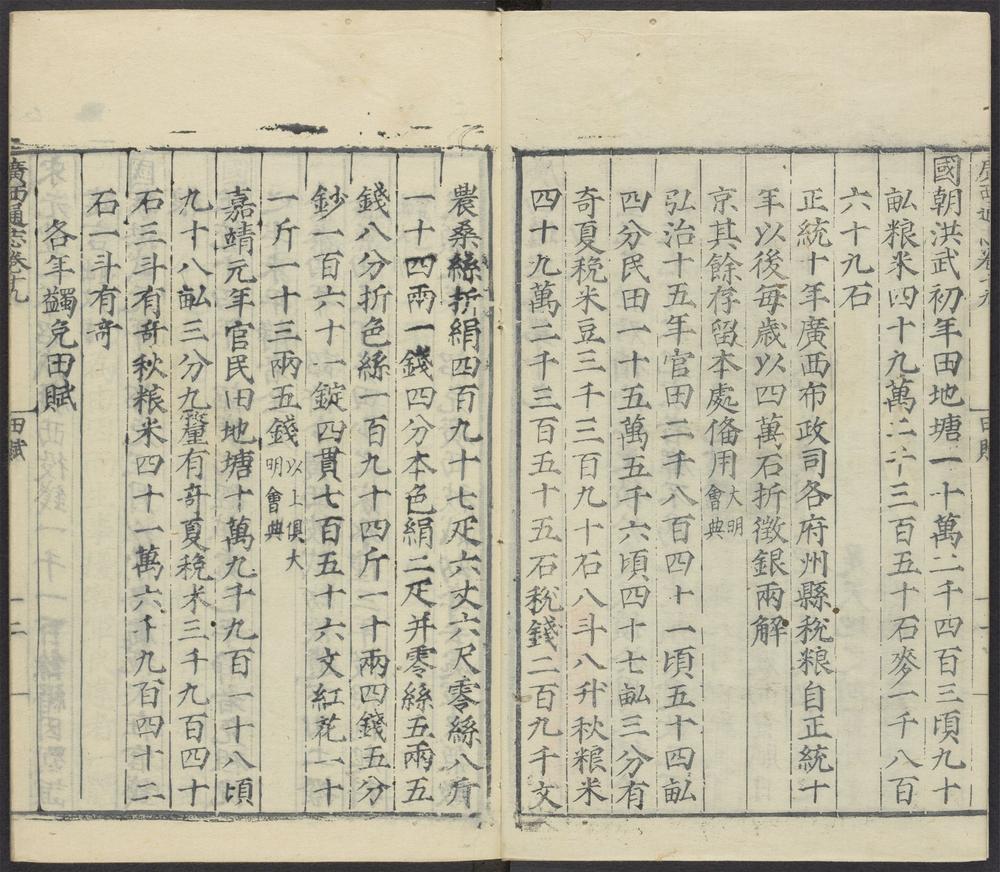 國朝洪武初年田地塘一十萬二千四百三頃九十
畝粮米四十九萬二千三百五十石麥一千八百
六十九石
正統十年廣西布政司各府州縣稅粮自正統十
年以後每歲以四萬石折徵銀兩解
京其餘存留本處俻用大明會典
弘治十五年官田二千八百四十一頃五十四畝
四分民田一十五萬五千六頃四十七畝三分有
奇夏稅米豆三千三百九十石八斗八升秋粮米
四十九萬二千三百五十五石稅錢二百九千文
田賦
農桑絲折絹四百九十七疋六丈六尺零絲八斤
一十四兩一錢四分本色絹二疋并零絲五兩五
錢八分折色絲一百九十四斤一十兩四錢五分
鈔一百六十一錠四貫七百五十六文紅花一十
一斤一十三兩五錢以上俱大明會典
嘉靖元年官民田地塘十萬九千九百一十八頃
九十八畝三分九釐有奇夏稅米三千九百四十
石三斗有奇秋粮米四十一萬六千九百四十二
石一斗有奇
各年蠲免田賦
廣西通志卷十九
田賦
十二